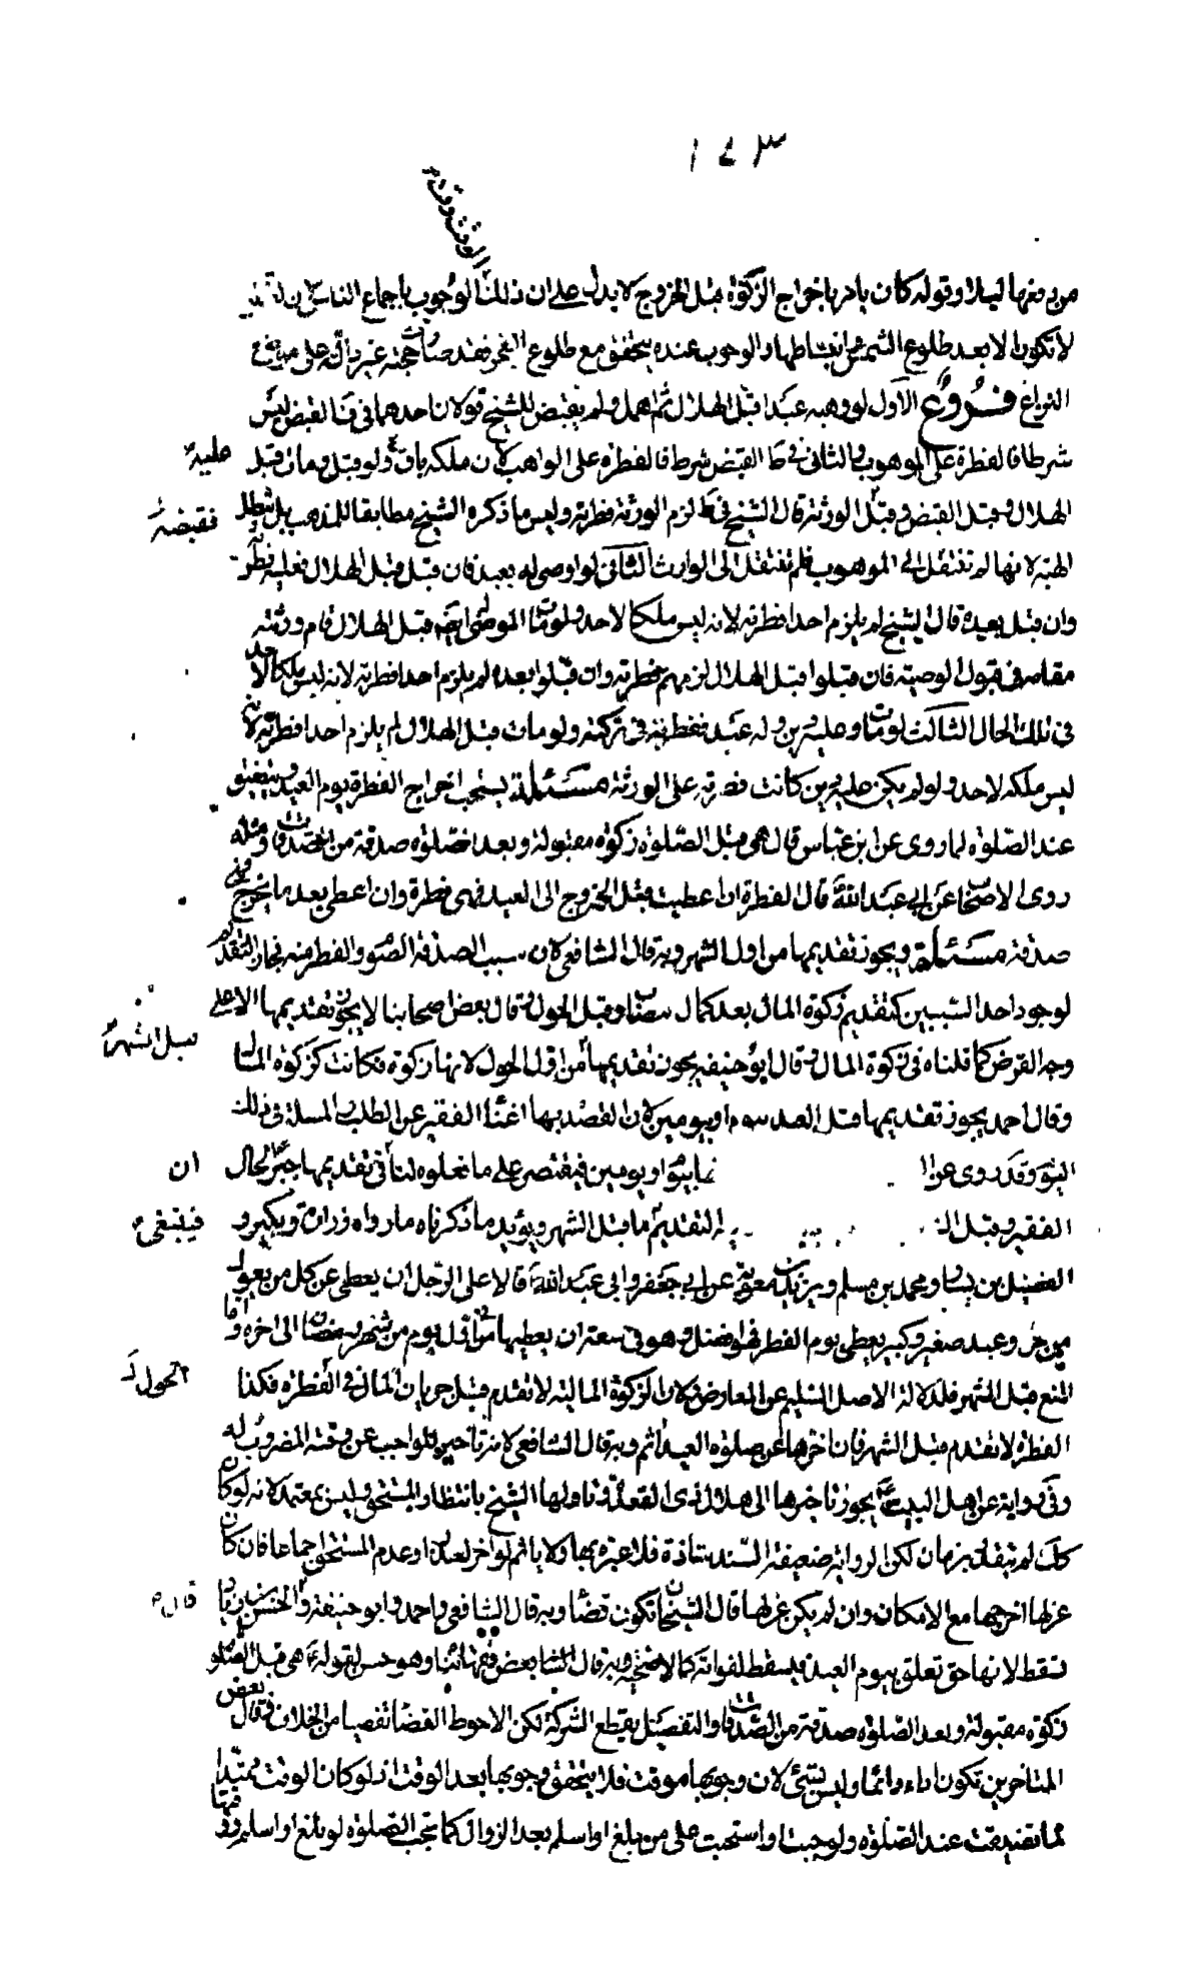 ١٧٣
الوقت وقت
من دفعها ليلا وقوله كان يامر باخراج الزكوة قبل الخروج لا يدل على ان ذلك الوجوب باجماع الناس لان
لا تكون الا بعد طلوع الشمس وانبساطها والوجوب عنده يتحقق مع طلوع الفجر فقد صارت حجته غير دالة على موضع
النزاع فروع الاول لو وهبه عبدا قبل الهلال ثم اهل ولم يقبض للشيخ قولان احدهما في ف القبض ليس
شرطا فالفطرة على الموهوب والثاني في ط القبض شرط فالفطرة على الواهب لان ملكه باق عليه ولو قبل ومات قبل
الهلال وقبل القبض فقبضه الورثة قال الشيخ في ط لزم الورثة فطرته وليس ما ذكره الشيخ مطابقا للمذهب بل تبطل
الهبة لانها لم تنتقل الى الموهوب فلم تنتقل الى الوارث الثاني لو اوصى له بعبد فان قبل قبل الهلال فعليه فطرته
وان قبل بعده قال الشيخ لم يلزم احدا فطرته لانه ليس ملكا لاحد ولو مات الموصى له قبل الهلال قام ورثته
مقامه في قبول الوصية فان قبلوا قبل الهلال لزمهم فطرته وان قبلوا بعده لم يلزم احدا فطرته لانه ليس ملكا لاحد
في تلك الحال الثالث لو مات وعليه دين وله عبد ففطرته في تركته ولو مات قبل الهلال لم يلزم احدا فطرته لانه
ليس ملكه لاحد ولو لم يكن عليه دين كانت فطرته على الورثة مسئلة يستحب اخراج الفطرة يوم العيد ويتضيق
عند الصلوة لما روى عن ابن عباس قال هي قبل الصلوة زكوة مقبولة وبعد الصلوة صدقة من الصدقات ومثله
روى الاصحاب عن ابي عبد الله قال الفطرة ان اعطيت قبل الخروج الى العيد فهي فطرة وان اعطى بعد ما يخرج فهي
صدقة مسئلة ويجوز تقديمها من اول الشهر وبه قال الشافعي لان سبب الصدقة الصوم والفطر منه فجاز التقديم
لوجود احد السببين كتقديم زكوة المال بعد كمال نصابه وقبل الحول وقال بعض اصحابنا لا يجوز تقديمها الا على
وجه القرض كما قلناه في زكوة المال وقال ابو حنيفة يجوز تقديمها قبل الشهر من اول الحول لانها زكوة فكانت كزكوة المال
وقال احمد يجوز تقديمها قبل العيد بيوم او يومين لان القصد بها اغناء الفقير عن الطلب والمسئلة في ذلك
اليوم وقد روى عن ان
بيوم او يومين فيقتصر على ما فعلوه لنا في تقديمها جبر لحال
الفقير وقبل
التقديم فينبغي ما قبل الشهر ويؤيد ما ذكرناه ما رواه زرارة وبكير و
الفضيل بن يسار ومحمد بن مسلم وبريد بن معوية عن ابي جعفر وابي عبد الله قالا على الرجل ان يعطى عن كل من يعول
من حر وعبد صغير وكبير يعطى يوم الفطر فهو افضل وهو في سعة ان يعطيها في اول يوم من شهر رمضان الى اخره واما
المنع قبل الشهر فلدلالة الاصل السليم عن المعارض ولان الزكوة المالية لا تقدم قبل جريان المال في الحول فكذا
الفطرة لا تقدم قبل الشهر فان اخرها عن صلوة العيد اثم وبه قال الشافعي لانه تاخير للواجب عن وقته المضروب له
وفي رواية عن اهل البيت يجوز تاخيرها الى هلال ذي القعدة وتاولها الشيخ بانتظار المستحق وليس بمعتمد لانه لو كان
كك لم يتقدر بزمان لكن الرواية ضعيفة السند شاذة فلا عبرة بها ولا ياثم لو اخر لعذر او عدم المستحق اجماعا فان كان
عزلها اخرجها مع الامكان وان لم يكن عزلها قال الشيخان تكون قضاء وبه قال الشافعي واحمد وابو حنيفة والحسن بن زياد قال
تسقط لانها حق تعلق بيوم العيد فيسقط لفواته كالاضحية وبه قال ايضا بعض فقهائنا وهو حسن لقوله هي قبل الصلوة
زكوة مقبولة وبعد الصلوة صدقة من الصدقات والتفصيل يقطع الشركة لكن الاحوط القضاء تفصيا من الخلاف فقال بعض
المتاخرين تكون اداء دائما وليس بشئ لان وجوبها موقت فلا يتحقق وجوبها بعد الوقت اذ لو كان الوقت ممتدا
لما تضيقت عند الصلوة ولوجبت او استحبت على من بلغ او اسلم بعد الزوال كما تجب الصلوة لو بلغ او اسلم